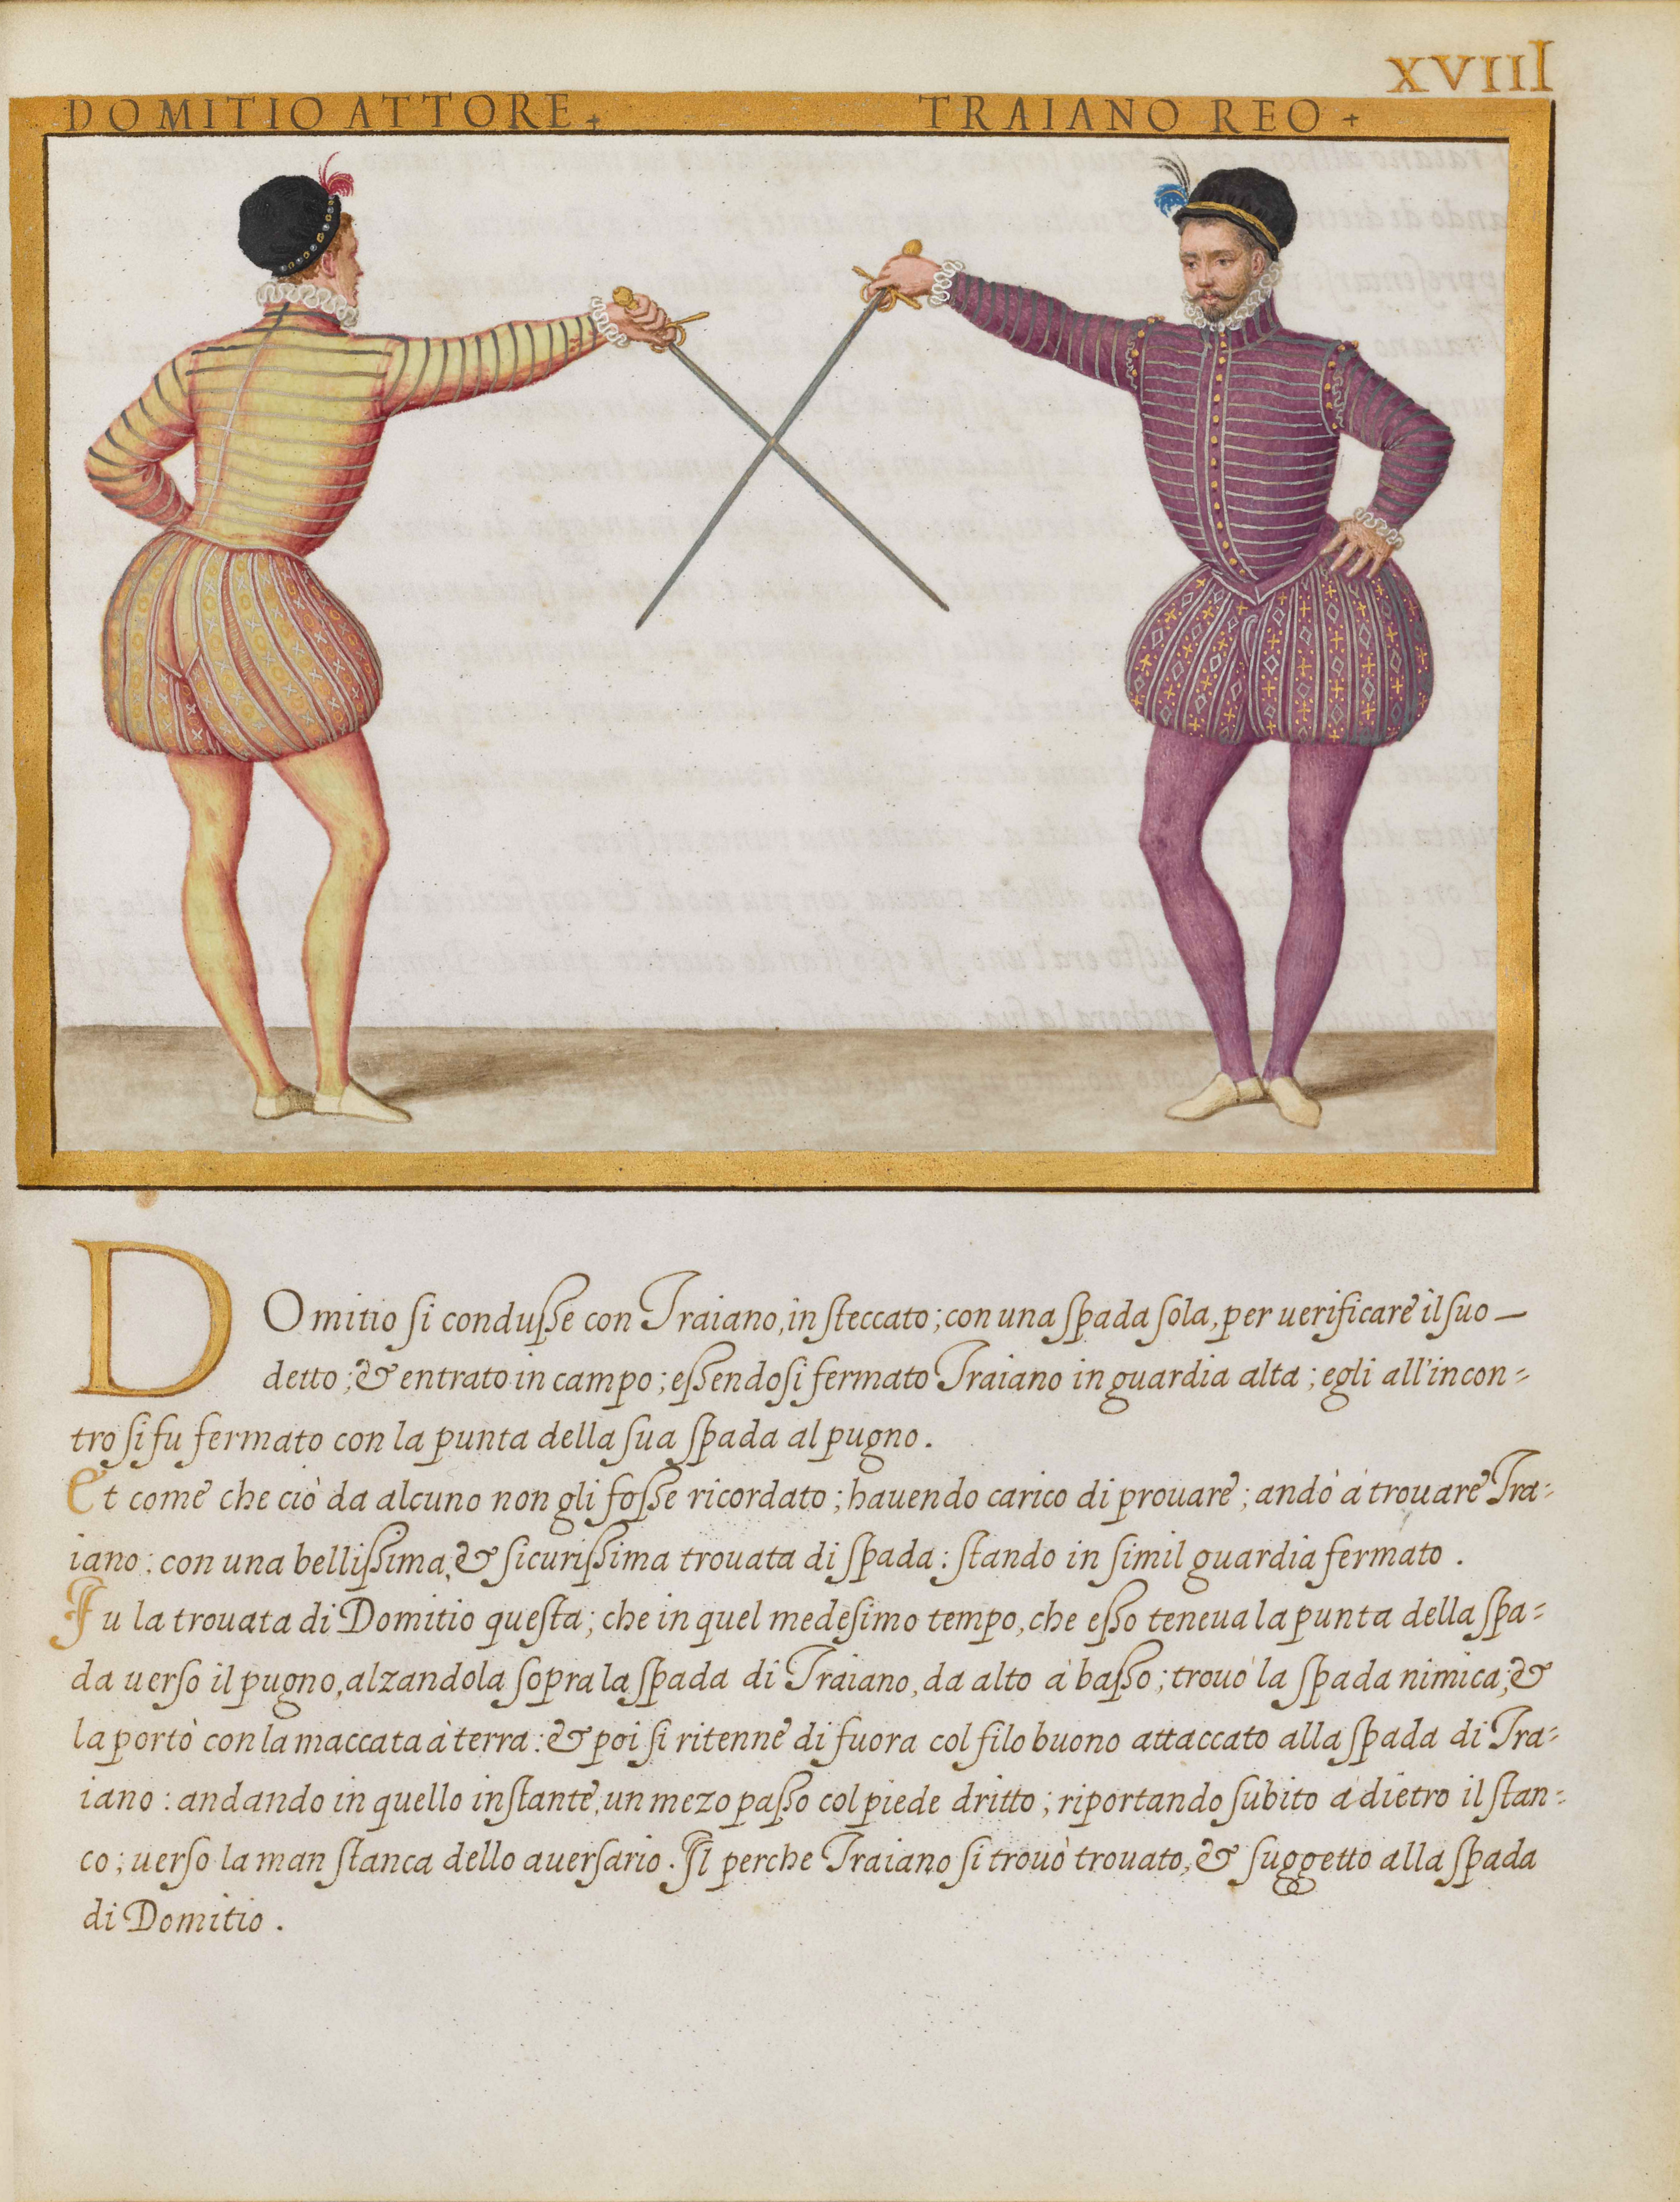 XVIIII
DOMITIO ATTORE + TRAIANO REO +
DOmitio ſi conduſſe con Traiano, in ſteccato; con una ſpada ſola, per uerificare il ſuo —
detto; & entrato in campo; eſſendoſi fermato Traiano in guardia alta; egli all'incon=
tro ſi fu fermato con la punta della ſua ſpada al pugno.
Et come che ciò da alcuno non gli foſſe ricordato; hauendo carico di prouare; andò à trouare Tra=
iano: con una belliſſima, & ſicuriſſima trouata di ſpada: ſtando in ſimil guardia fermato.
Fu la trouata di Domitio queſta; che in quel medeſimo tempo, che eſſo teneua la punta della ſpa=
da uerſo il pugno, alzandola ſopra la ſpada di Traiano, da alto à baſſo; trouò la ſpada nimica; &
la portò con la maccata à terra: & poi ſi ritenne di fuora col filo buono attaccato alla ſpada di Tra=
iano: andando in quello inſtante, un mezo paſſo col piede dritto; riportando ſubito a dietro il ſtan=
co; uerſo la man ſtanca dello auerſario. Il perche Traiano ſi trouò trouato, & ſuggetto alla ſpada
di Domitio.